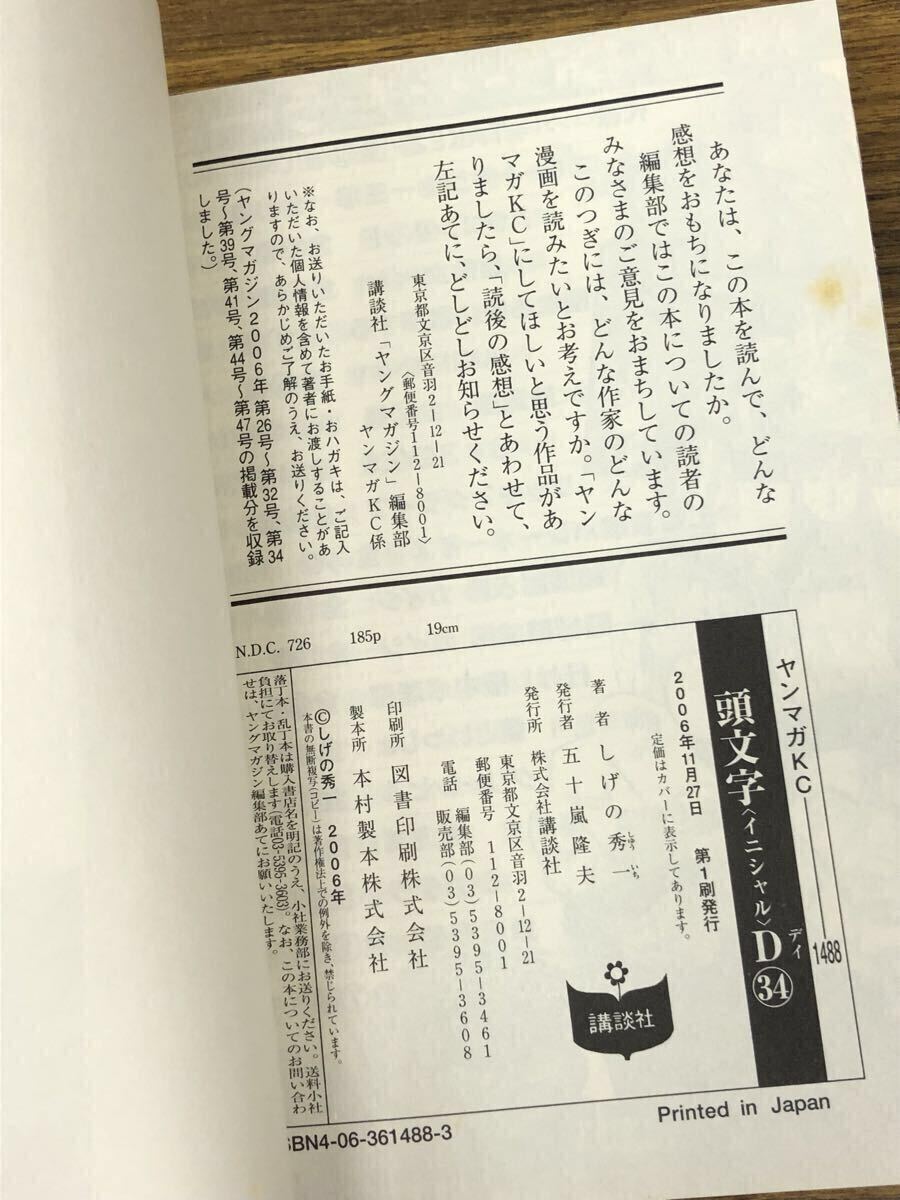 あなたは、この本を読んで、どんな
感想をおもちになりましたか。
編集部ではこの本についての読者の
みなさまのご意見をおまちしています。
このつぎには、どんな作家のどんな
漫画を読みたいとお考えですか。「ヤン
マガKC」にしてほしいと思う作品があ
りましたら、「読後の感想」とあわせて、
左記あてに、どしどしお知らせください。
東京都文京区音羽2―12―21
〈郵便番号112―8001〉
講談社「ヤングマガジン」編集部
ヤンマガKC係
※なお、お送りいただいたお手紙・おハガキは、ご記入
いただいた個人情報を含めて著者にお渡しすることがあ
りますので、あらかじめご了解のうえ、お送りください。
(ヤングマガジン2006年 第26号～第32号、第34
号～第39号、第41号、第44号～第47号の掲載分を収録
しました。)
N.D.C. 726 185p 19cm
ヤンマガKC―1488
頭文字〈イニシャル〉D㉞
ディ
2006年11月27日 第1刷発行
定価はカバーに表示してあります。
著者 しげの秀一
しゅういち
発行者 五十嵐隆夫
発行所 株式会社講談社
東京都文京区音羽2―12―21
郵便番号 112―8001
電話 編集部(03)5395―3461
販売部(03)5395―3608
印刷所 図書印刷株式会社
製本所 本村製本株式会社
©しげの秀一 2006年
本書の無断複写(コピー)は著作権法上での例外を除き、禁じられています。
落丁本・乱丁本は購入書店名を明記のうえ、小社業務部にお送りください。送料小社
負担にてお取り替えします(電話03-5395-3603)。なお、この本についてのお問い合わ
せは、ヤングマガジン編集部あてにお願いいたします。
講談社
SBN4-06-361488-3
Printed in Japan